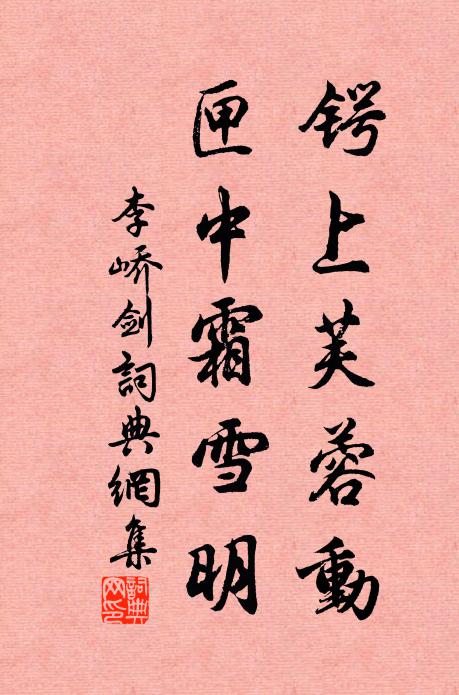 锷上芙蓉動
匣中霜雪明
李嶠劍詞典網集
詞典网印